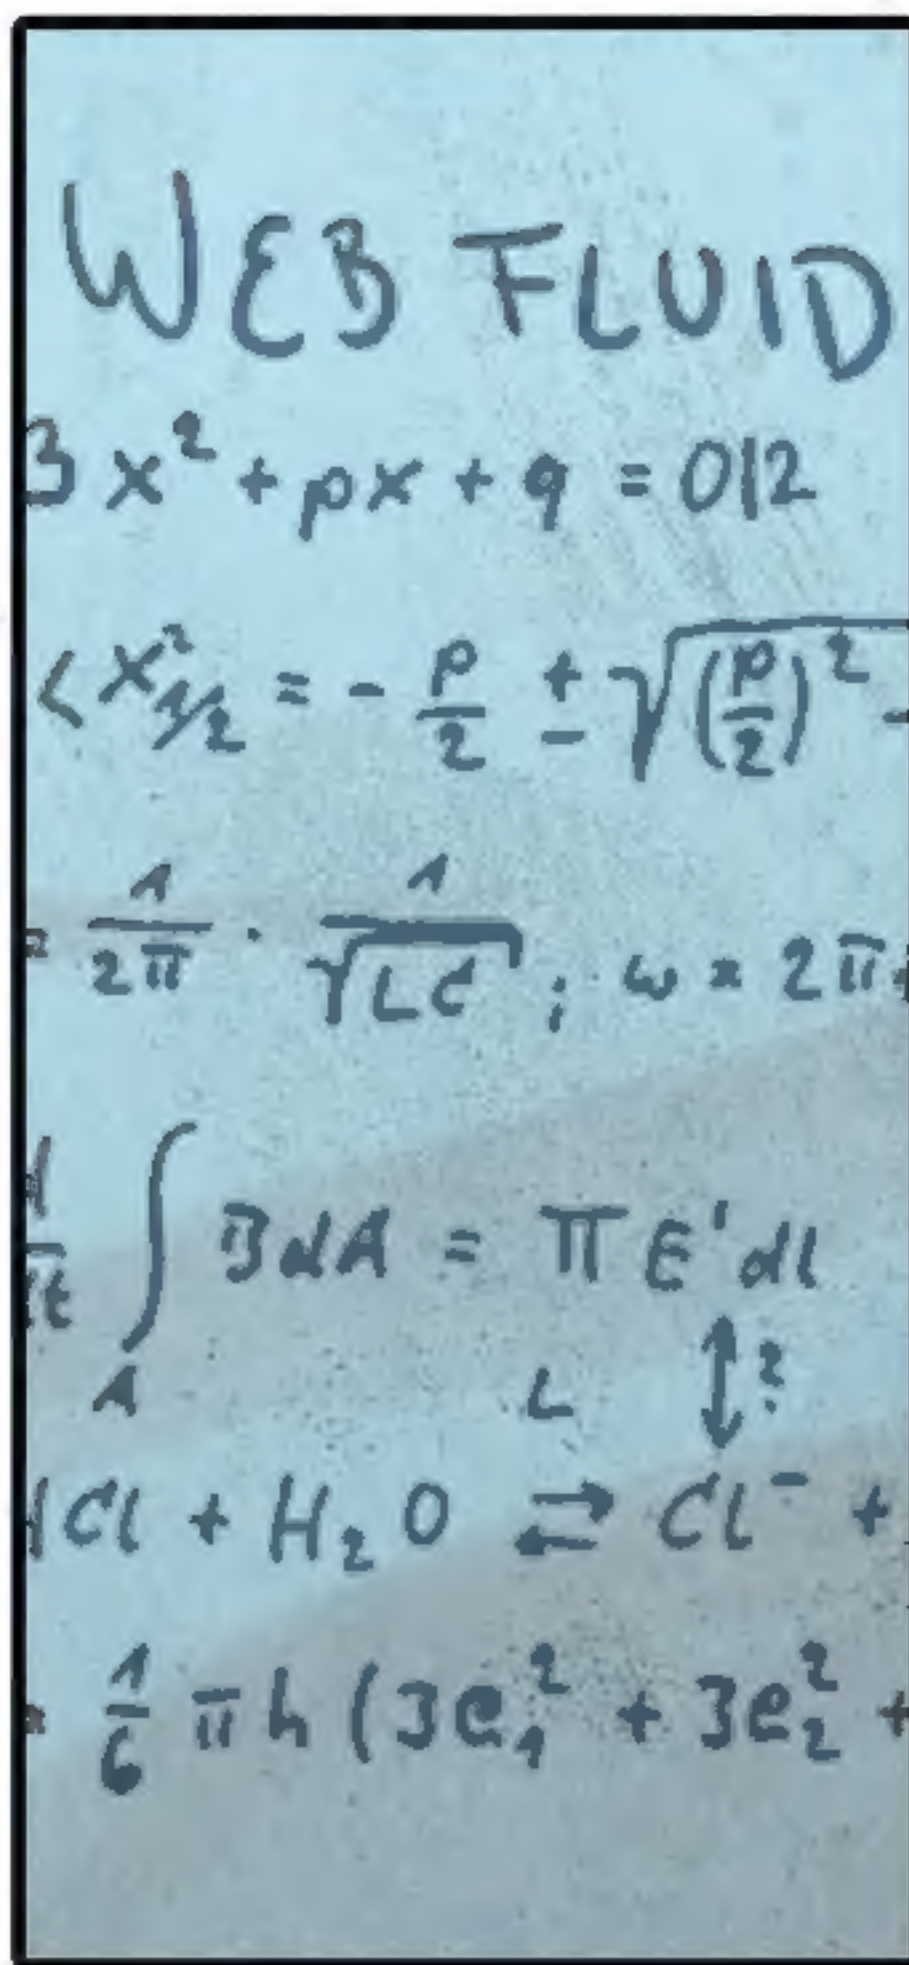 WEB FLUID
3x² + px + q = 012
< x²₁/₂ = - p/2 ± √(p/2)² -
= 1/2π · 1/√LC ; ω = 2π
∫ B dA = π E' dl
A L ↕?
HCl + H₂O ⇄ Cl⁻ +
= 1/6 π h (3e₁² + 3e₂² +